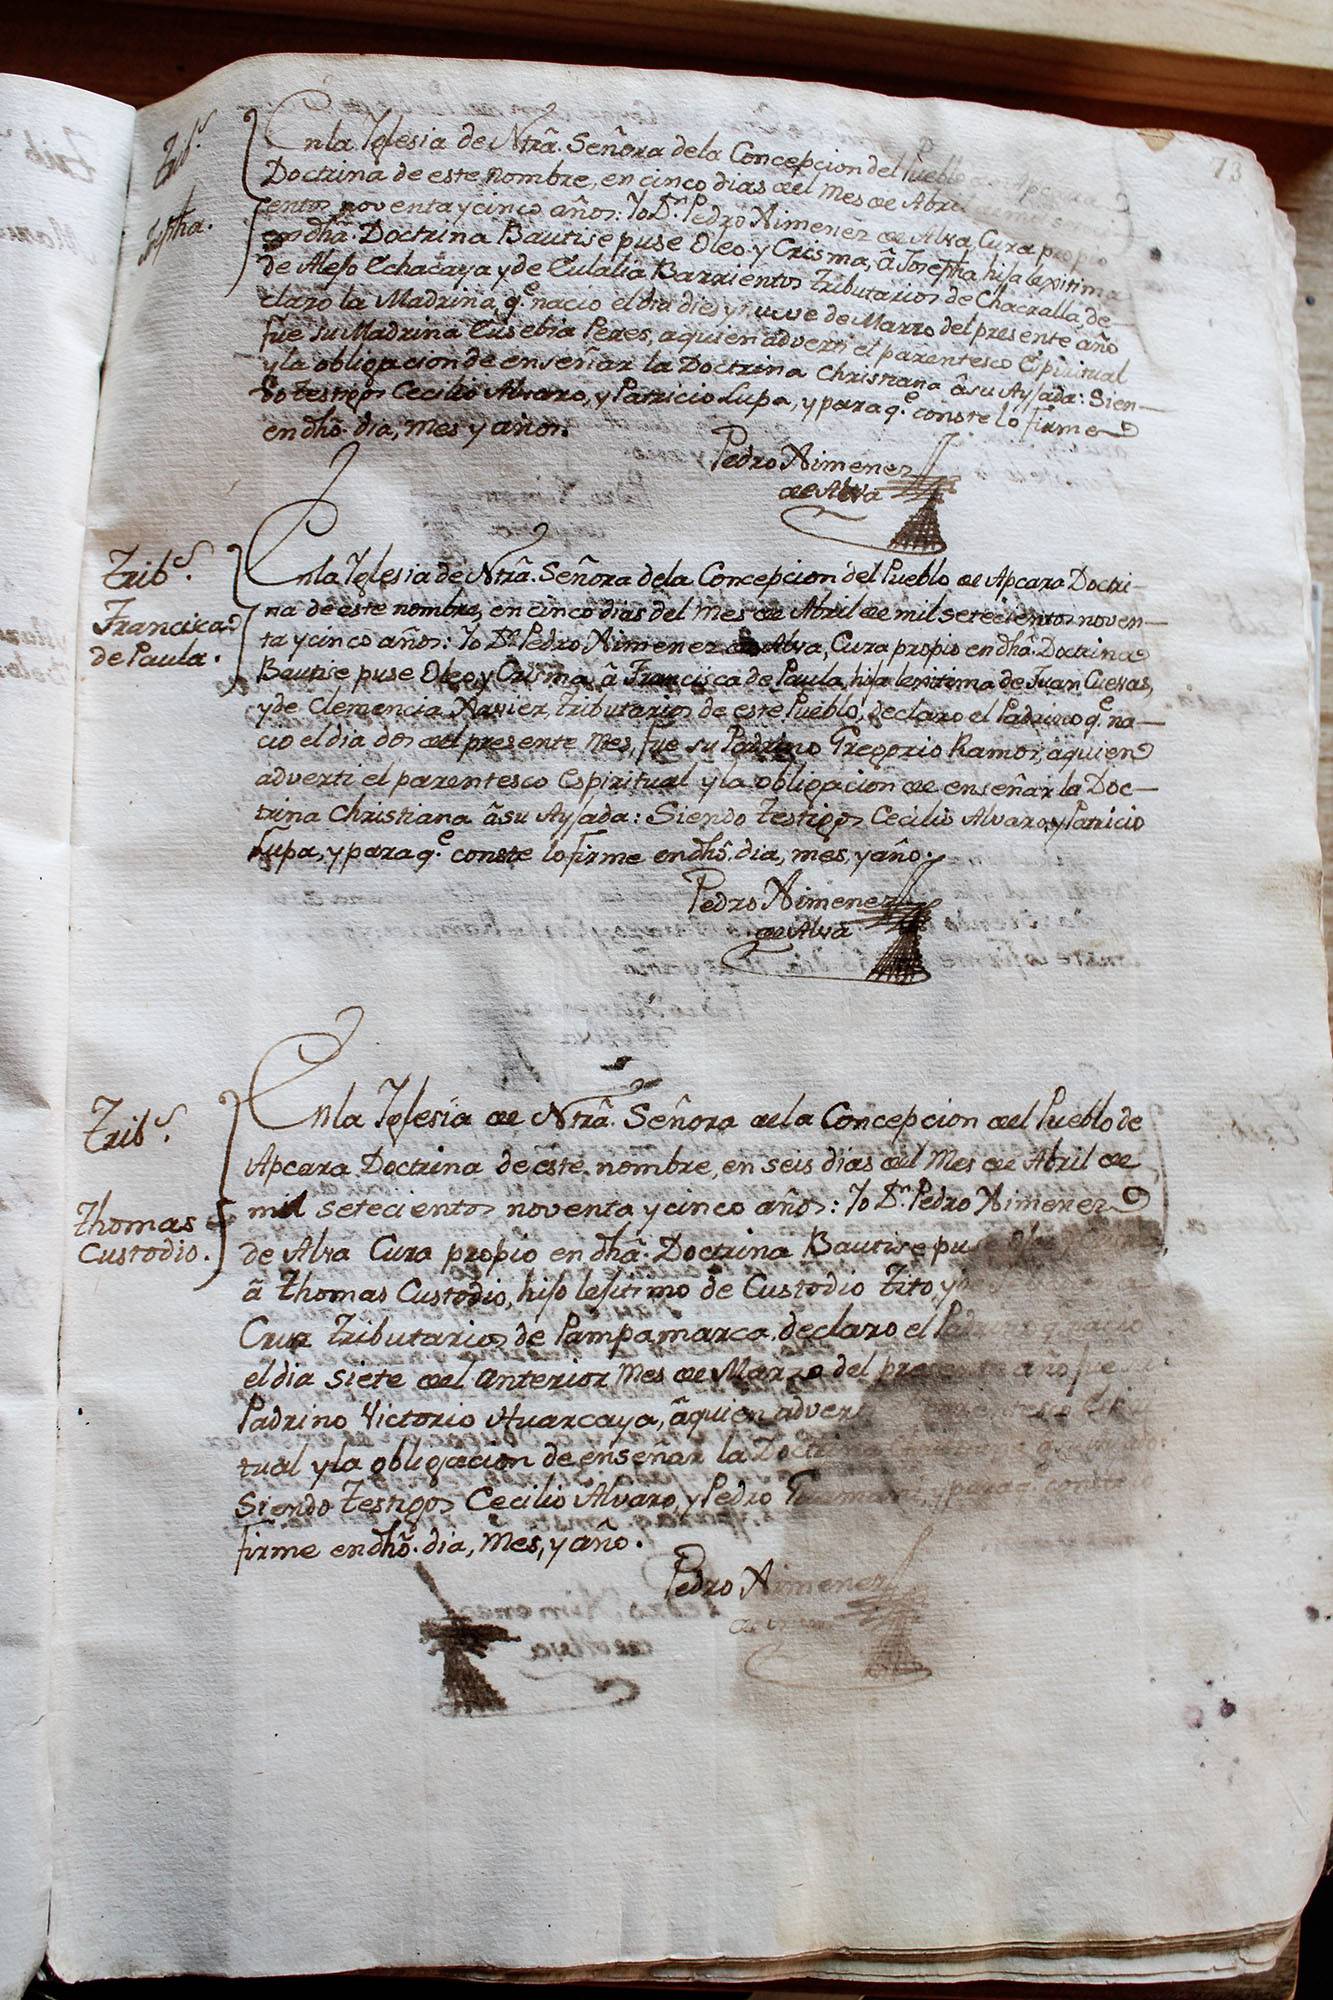 73
Trib.s
Josepha.
En la Yglesia de Ntrã. Señora dela Concepcion del Pueblo de Apcara
Doctrina de este nombre, en cinco dias del Mes de Abril
entos noventa y cinco años: Yo Dn. Pedro Ximenez de Alva, Cura propio
en dhã. Doctrina Bautise puse Oleo, y Crisma, â Josepha hija lexitima
de Alejo Echacaya y de Eulalia Barrientos tributarios de Chacralla, de-
claro la Madrina, qe. nacio el dia dies y nueve de Marzo del presente año
fue su Madrina Eusebia Peres, a quien adverti el parentesco Espiritual
y la obligacion de enseñar la Doctrina Christiana âsu Ayjada: Sien-
do testigos Cecilio Alvaro, y Patricio Lupa, y para qe. conste lo firme
en dhõ. dia, mes y años.
Pedro Ximenez
de Alva
Trib.s
Francisca
de Paula.
En la Yglesia de Ntrã. Señora dela Concepcion del Pueblo de Apcara Doctri-
na de este nombre, en cinco dias del Mes de Abril de mil setecientos noven-
ta y cinco años: Yo Dn. Pedro Ximenez de Alva, Cura propio en dhã. Doctrina
Bautise puse Oleo, y Crisma, â Francisca de Paula, hija lexitima de Juan Cuevas,
y de Clemencia Xavier, tributarios de este Pueblo, declaro el Padrino qe. na-
cio el dia dos del presente Mes, fue su Padrino Gregorio Ramos, aquien
adverti el parentesco Espiritual y la obligacion de enseñar la Doc-
trina Christiana âsu Ayjada: Siendo testigos Cecilio Alvaro, y Patricio
Lupa, y para qe. conste lo firme en dhõ. dia, mes, y año.
Pedro Ximenez
de Alva
Trib.s
Thomas
Custodio.
En la Yglesia de Ntrã. Señora dela Concepcion del Pueblo de
Apcara Doctrina de este nombre, en seis dias del Mes de Abril de
mil setecientos noventa y cinco años: Yo Dn. Pedro Ximenez
de Alva Cura propio en dhã. Doctrina Bautise puse Oleo
â Thomas Custodio, hijo lejitimo de Custodio Tito, y
Cruz tributarios de Pampamarca, declaro el Padrino q nacio
el dia siete del anterior Mes de Marzo del presente año fue
Padrino Victorio Huarcaya, âquien adverti parentesco Espiri
tual y la obligacion de enseñar la Doctrina
Siendo testigos Cecilio Alvaro, y Pedro y para q conste
firme en dhõ. dia, Mes, y año.
Pedro Ximenez